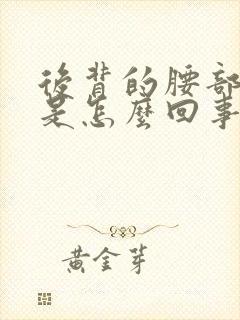 後背的腰部
是怎麼回事
黃金芽